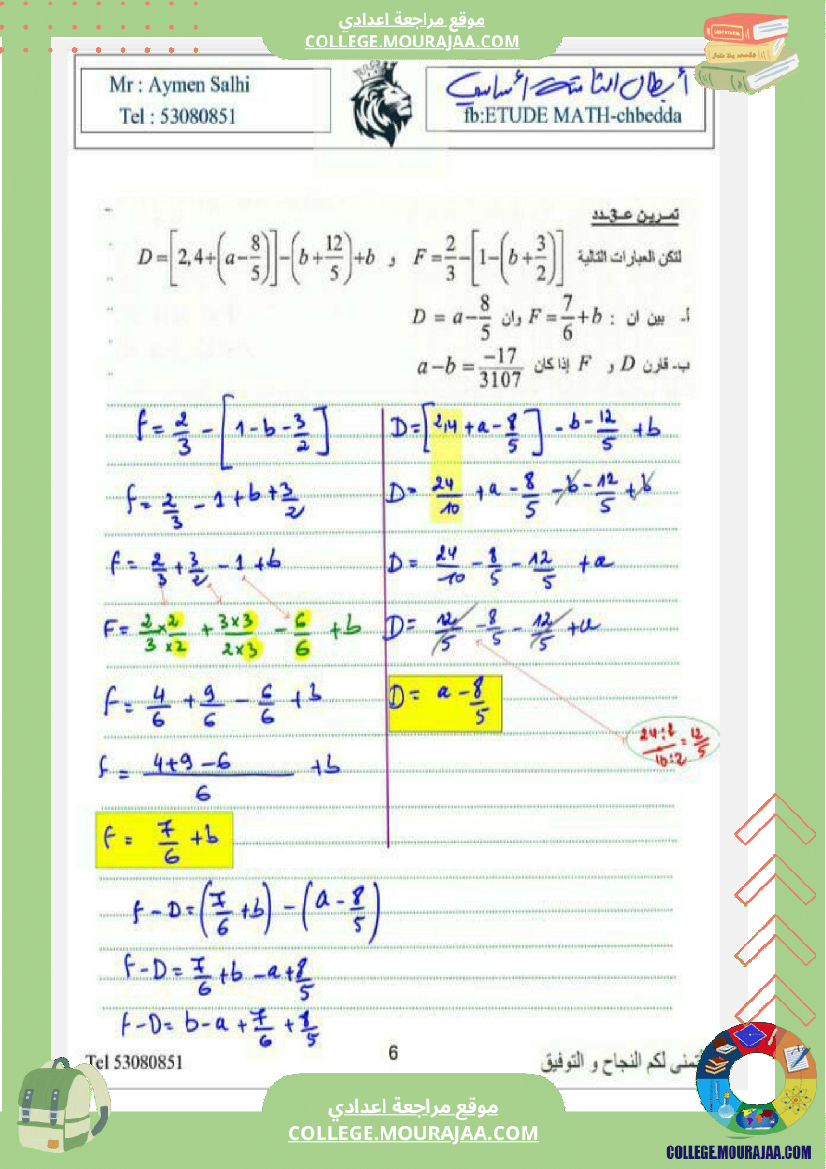 موقع مراجعة اعدادي
COLLEGE.MOURAJAA.COM
Mr : Aymen Salhi
Tel : 53080851
أبطال الثامنة أساسي
fb:ETUDE MATH-chbedda
تمرين عدد
لتكن العبارات التالية F = 2/3 - [1 - (b + 3/2)] و D = [2,4 + (a - 8/5)] - (b + 12/5) + b
أ- بين ان : F = 7/6 + b وان D = a - 8/5
ب- قارن D و F إذا كان a - b = -17/3107
F = 2/3 - [1 - b - 3/2]
F = 2/3 - 1 + b + 3/2
F = 2/3 + 3/2 - 1 + b
F = 2×2/3×2 + 3×3/2×3 - 6/6 + b
F = 4/6 + 9/6 - 6/6 + b
F = 4+9-6/6 + b
F = 7/6 + b
D = [2,4 + a - 8/5] - b - 12/5 + b
D = 24/10 + a - 8/5 - b - 12/5 + b
D = 24/10 - 8/5 - 12/5 + a
D = 12/5 - 8/5 - 12/5 + a
D = a - 8/5
24÷2/10÷2 = 12/5
F - D = (7/6 + b) - (a - 8/5)
F - D = 7/6 + b - a + 8/5
F - D = b - a + 7/6 + 8/5
Tel 53080851
6
تمنى لكم النجاح و التوفيق
موقع مراجعة اعدادي
COLLEGE.MOURAJAA.COM
COLLEGE.MOURAJAA.COM